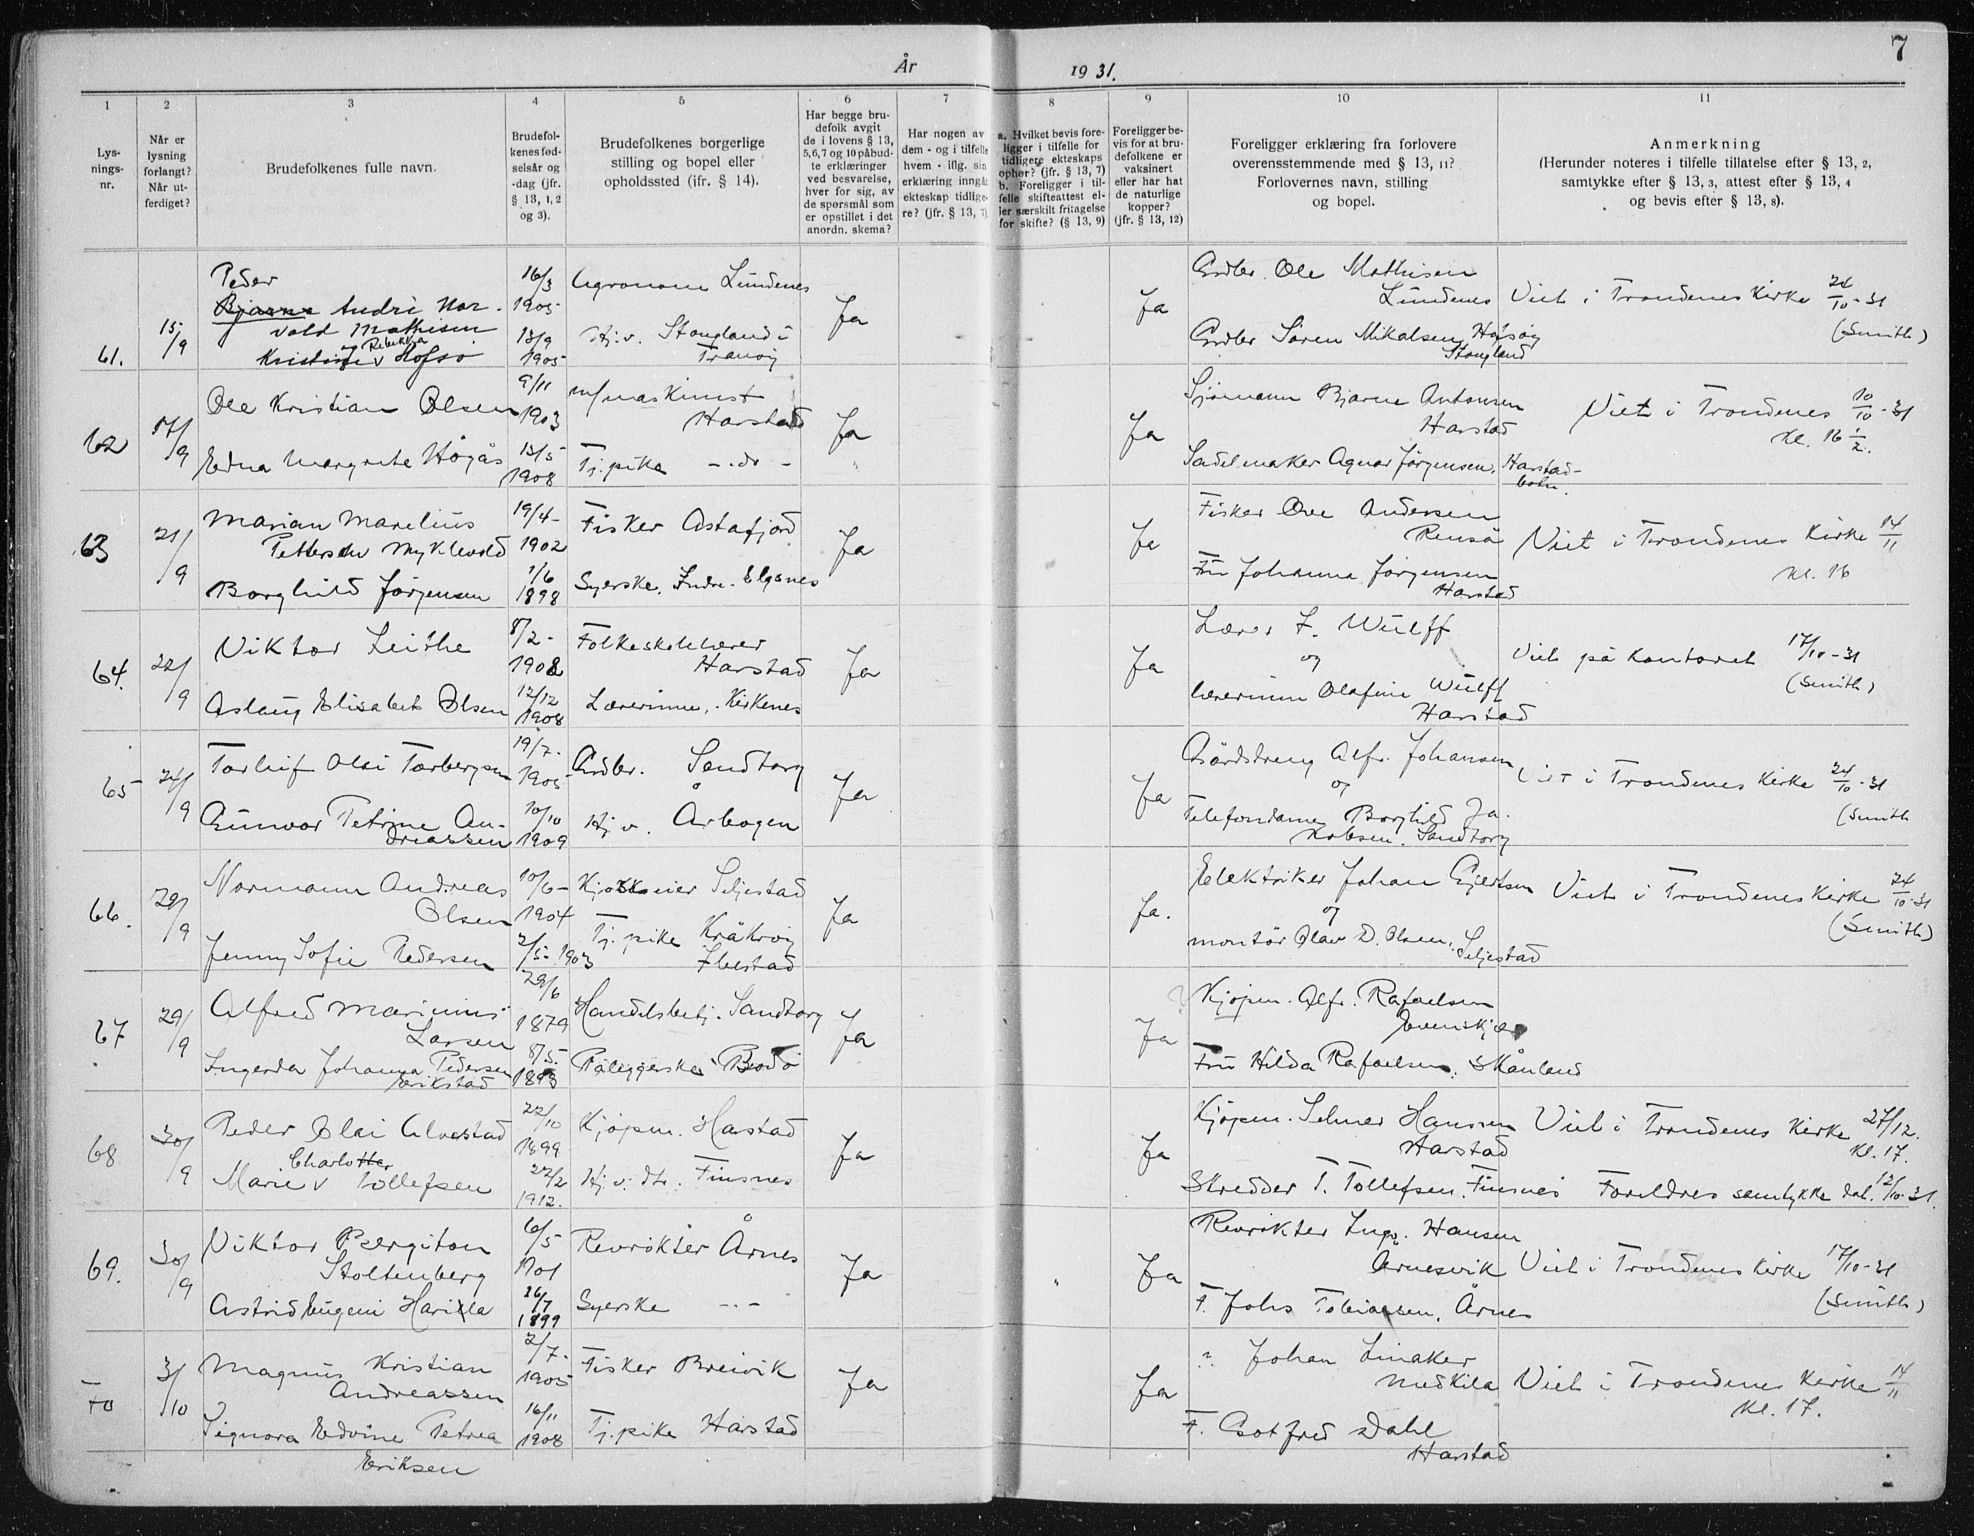 7
År 1931.
1 2 3 4 5 6 7 8 9 10 11
Lysningsnr.
Når er lysning forlangt? Når utferdiget?
Brudefolkenes fulle navn.
Brudefolkenes fødselsår og -dag (jfr. § 13, 1, 2 og 3).
Brudefolkenes borgerlige stilling og bopel eller opholdssted (jfr. § 14).
Har begge brudefolk avgit de i lovens § 13, 5, 6, 7 og 10 påbudte erklæringer ved besvarelse, hver for sig, av de spørsmål som er opstillet i det anordn. skema?
Har nogen av dem - og i tilfelle hvem - iflg. sin erklæring inngåt ekteskap tidligere? (jfr. § 13, 7)
a. Hvilket bevis foreligger i tilfelle for tidligere ekteskaps ophør? (jfr. § 13, 7) b. Foreligger i tilfelle skifteattest eller særskilt fritagelse for skifte? (§ 13, 9)
Foreligger bevis for at brudefolkene er vaksinert eller har hat de naturlige kopper? (jfr. § 13, 12)
Foreligger erklæring fra forlovere overensstemmende med § 13, 11? Forlovernes navn, stilling og bopel.
Anmerkning (Herunder noteres i tilfelle tillatelse efter § 13, 2, samtykke efter § 13, 3, attest efter § 13, 4 og bevis efter § 13, 8).
61. 15/9
Peder
Bjarne Andri Nor-
vald Mathisen
Kristine v Hofsø
og Rebekka
16/3 1905
13/9 1905
Agronom Lundenes
Hj.v. Stongland i Tranøy
Ja Ja
Grdbr. Ole Mathisen Lundenes
Grdbr Søren Mikalsen Hofsøy Stongland
Viet i Trondenes Kirke 24/10-31
(Smith)
62 17/9
Ole Kristian Olsen 9/11 1903
m/maskinist Harstad
Edna Margrete Högås 13/5 1908
Tj.pike -do-
Ja Ja
Sjömann Bjarne Antonsen Harstad
Sadelmaker Agnar Jørgensen. Harstadbotn.
Viet i Trondenes 10/10-31
Kl. 16 1/2.
63 21/9
Marian Marelius
Pettersen Myklevold 19/4- 1902
Fisker Astafjord
Borghild Jørgensen 1/6 1898
Syerske. Indre-Elgsnes
Ja Ja
Fisker Ove Andersen Renså
Fru Johanna Jørgensen Harstad
Viet i Trondenes Kirke 14/11
Kl. 16
64. 22/9
Viktor Leithe 8/2- 1908
Folkeskolelærer Harstad
Aslaug Elisabet Olsen 12/12 1908
Lærerinne, Kirkenes
Ja Ja
Lærer F. Wulff
og
lærerinne Olafine Wulff
Harstad
Viet på kontoret 17/10-31
(Smith)
65 24/9
Torleif Olai Torbergsen 19/7- 1905
Grdbr. Sandtorg
Gunvor Petrine An-
dreassen 10/10 1909
Hj.v. Årbogen
Ja Ja
Gårdsdreng Alfr. Johansen
og
Telefondame Borghild Ja-
kobsen. Sandtorg
Viet i Trondenes Kirke 24/10-31
(Smith
66. 29/9
Normann Andreas
Olsen 10/6- 1904
Kioskeier Seljestad
Jenny Sofie Pedersen 2/5-1903
Tj.pike Kråkrøy Ibestad
Ja Ja.
Elektriker Johan Gjertsen
og
montör Olav D. Olsen, Seljestad
Viet i Trondenes Kirke 24/10-31
(Smith)
67 29/9
Alfred Marinius
Larsen 29/6 1879
Handelsbetj. Sandtorg
Ingerda Johanna Pedersen
Erikstad 8/5. 1893
Påleggerske Bodø
Ja Ja
Kjøpm. Alfr. Rafaelsen
Evenskjær
Fru Hilda Rafaelsen, Skånland
68 30/9
Peder Olai Alvestad 22/10 1899
Kjøpm. Harstad
Charlotte
Marie v Tollefsen 22/2 1912.
Hj.v. dtr. Finsnes
Ja Ja
Kjøpm. Selmer Hansen Harstad
Skredder T. Tollefsen. Finsnes
Viet i Trondenes Kirke 27/12.
Kl. 17.
Foreldres samtykke dat. 12/10-31.
69. 30/9
Viktor Bergiton
Stoltenberg 6/5 1901
Revrøkter Årnes
Astrid Eugeni Harilla 26/7 1899
Syerske -"-
Ja Ja
Revrøkter Ingv. Hansen
Årnesvik
F. Johs Tobiassen, Årnes
Viet i Trondenes Kirke 17/10-31
(Smith)
70 3/10
Magnus Kristian
Andreassen 2/7- 1905
Fisker Breivik
Signora Edvine Petrea
Eriksen 16/11 1908
Tj.pike Harstad
Ja Ja
Johan Linaker
Medkila
F. Gotfred Dahl
Harstad
Viet i Trondenes Kirke 14/11
Kl. 17.